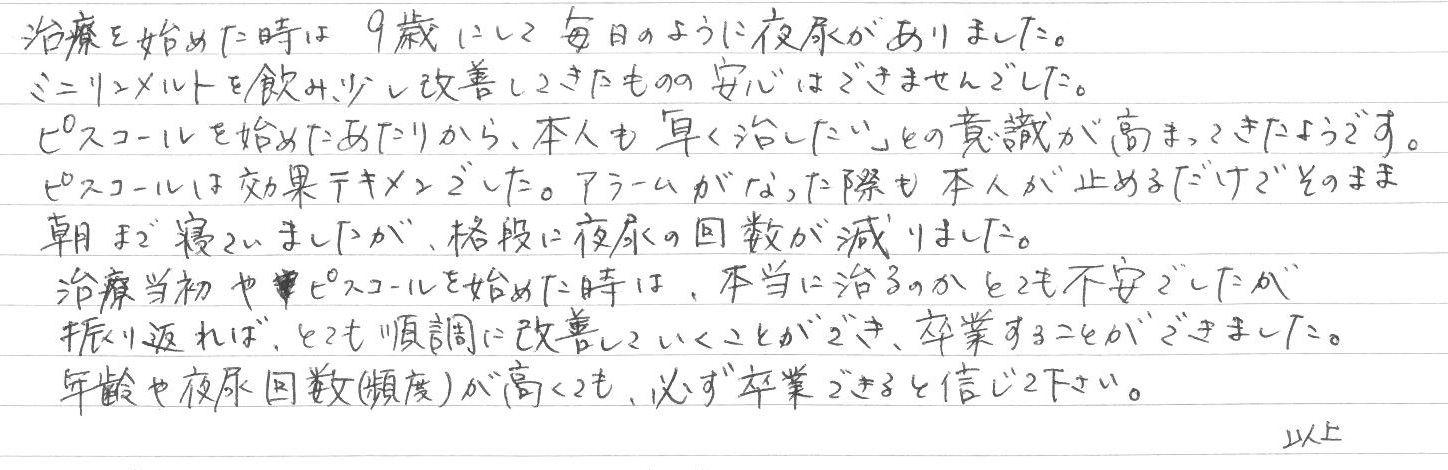 治療を始めた時は 9歳にして毎日のように夜尿がありました。
ミニリンメルトを飲み、少し改善してきたものの安心はできませんでした。
ピスコールを始めたあたりから、本人も「早く治したい」との意識が高まってきたようです。
ピスコールは効果テキメンでした。アラームがなった際も本人が止めるだけでそのまま
朝まで寝ていましたが、格段に夜尿の回数が減りました。
治療当初やピスコールを始めた時は、本当に治るのかとても不安でしたが
振り返れば、とても順調に改善していくことができ、卒業することができました。
年齢や夜尿回数(頻度)が高くても、必ず卒業できると信じて下さい。
以上